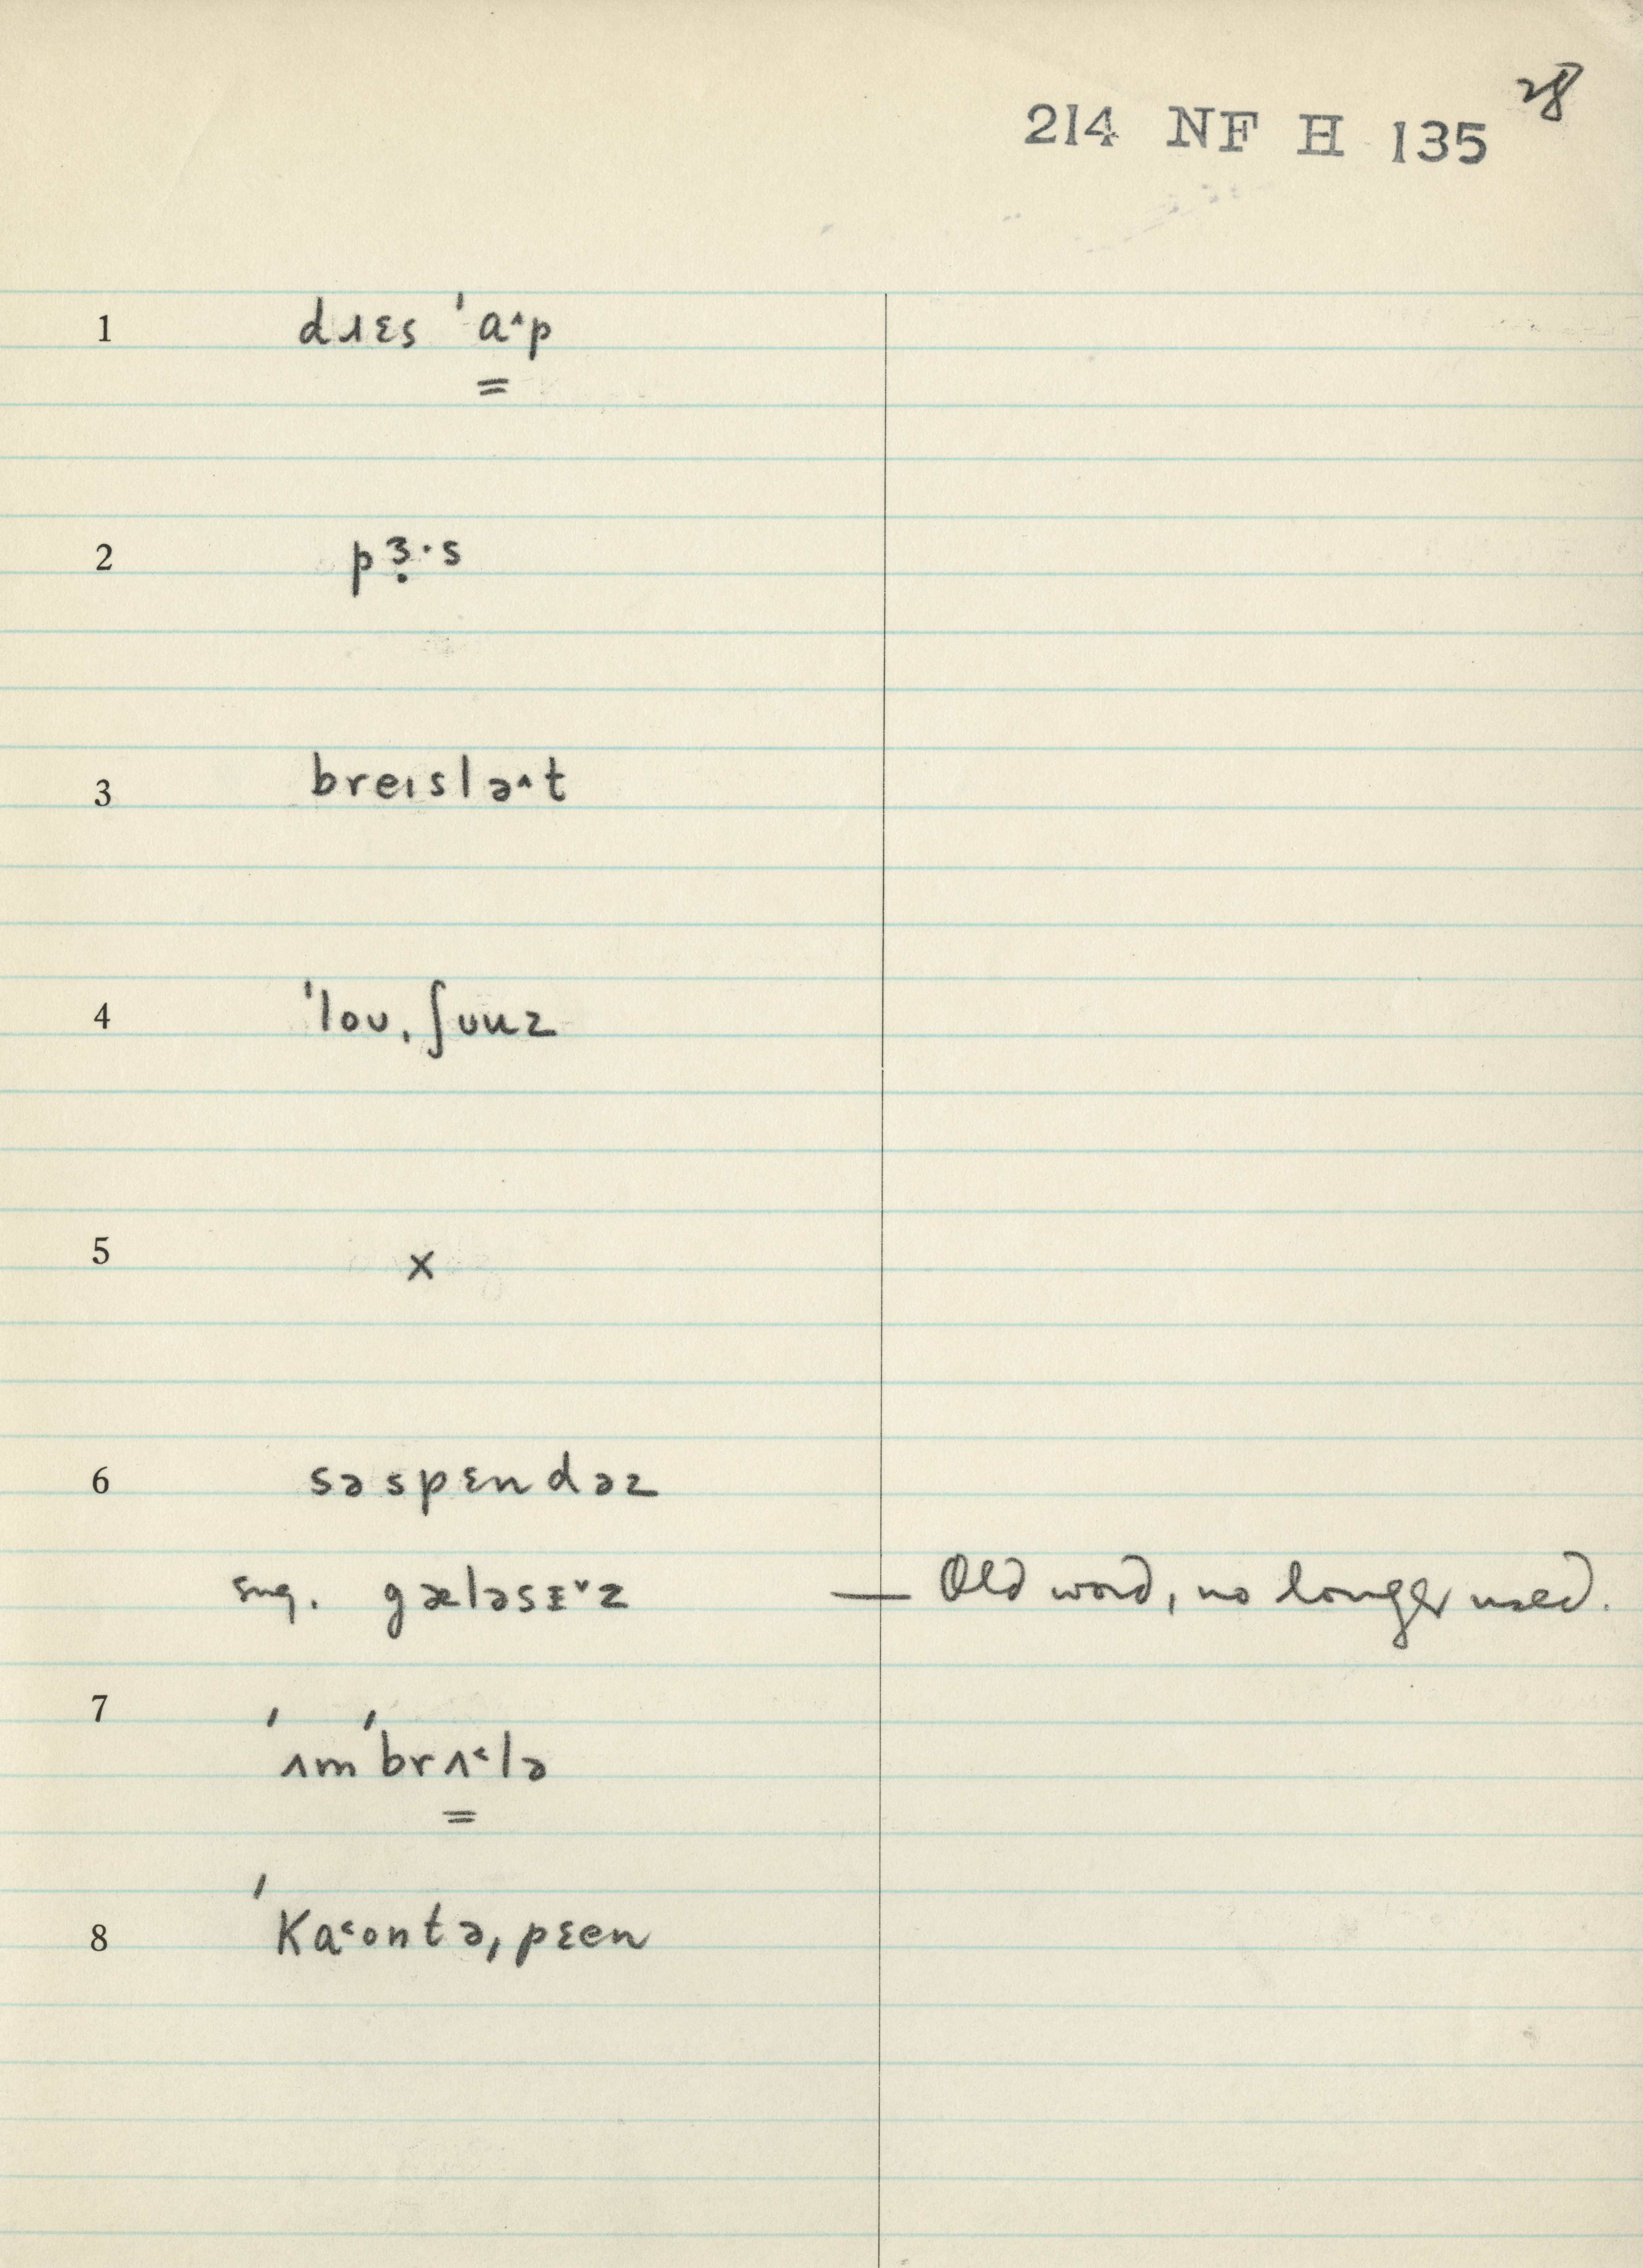 28
214 NF H 135
1 dɹɛs ˈɑ˄p
=
2 pɜ̣·s
3 breɪslə˄t
4 ˈloʊˌʃʊuz
5 x
6 səspɛndəz
sug. gæləsᴇ˅z — Old word, no longer used.
7 ˈʌmˈbrʌ˂lə
=
8 ˈKa˂ontəˌpɛen